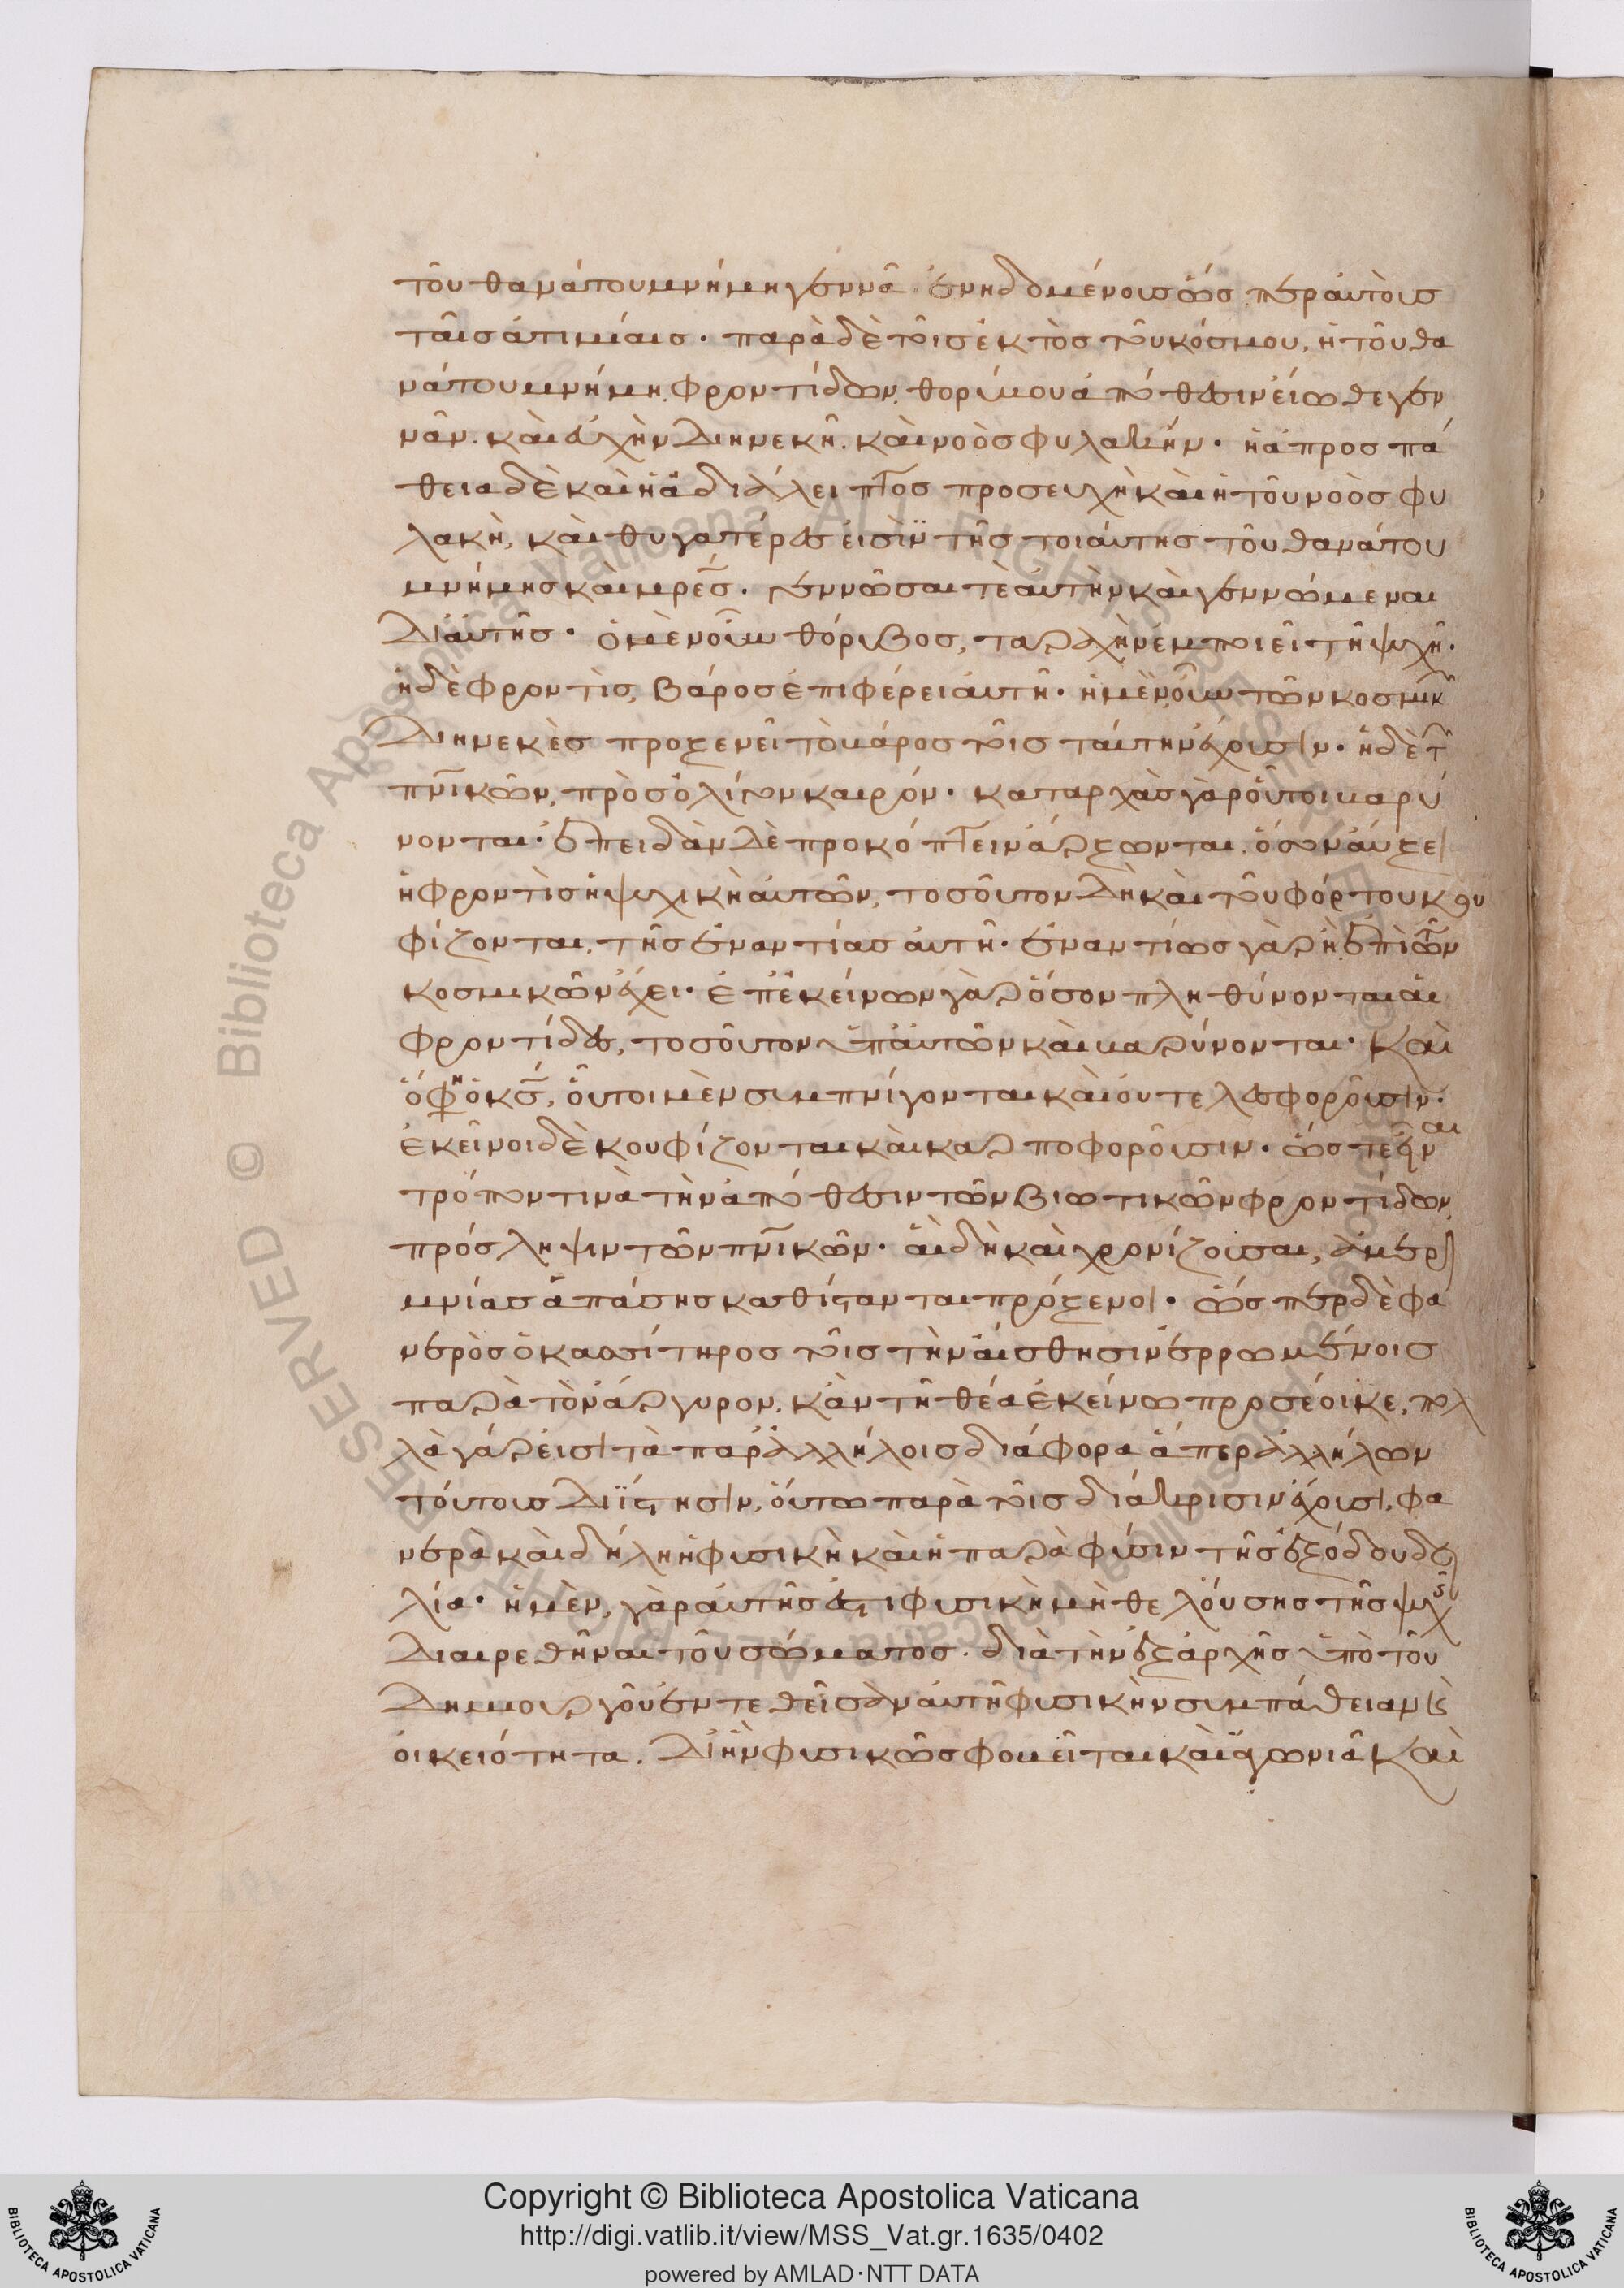 τοῦ θανάτου μνήμη γεννᾶ. ἐνηδομένους ὥσπερ αὐτοὺς
ταῖς ἀτιμίαις· παρὰ δὲ τοῖς ἐκτὸς τοῦ κόσμου, ἡ τοῦ θα
νάτου μνήμη, φροντίδων, θορύβου ἀπόθεσιν εἴωθε γεν
νᾶν. καὶ εὐχὴν διηνεκῆ. καὶ νοὸς φυλακήν· ἡ ἀπροσπά
θεια δὲ καὶ ἡ ἀδιάλειπτος προσευχὴ καὶ ἡ τοῦ νοὸς φυ
λακὴ, καὶ θυγατέρες εἰσὶν τῆς τοιαύτης τοῦ θανάτου
μνήμης καὶ μρες. γεννῶσαι τὲ αὐτὴν καὶ γεννώμεναι
δι' αὐτῆς· ὁ μὲν οὖν θόρυβος, ταραχὴν ἐμποιεῖ τῇ ψυχῇ·
ἡ δὲ φροντὶς, βάρος ἐπιφέρει αὐτῇ· ἡ μὲν οὖν τῶν κοσμικ
διηνεκὲς προξενεῖ τὸ βάρος τοῖς ταύτην ἔχουσιν· ἡ δὲ τ
πνικῶν, πρὸς ὀλίγον καιρόν· καταρχὰς γὰρ οὗτοι βαρύ
νονται· ἐπειδὰν δὲ προκόπτειν ἄρξωνται. ὅσον αὔξει
ἡ φροντὶς ἡ ψυχικὴ αὐτῶν, τοσοῦτον δὴ καὶ τοῦ φόρτου κου
φίζονται. τῆς ἐναντίας αὐτῇ· ἐναντίως γὰρ ἡ ἐπὶ τῶν
κοσμικῶν ἔχει· ἐπ' ἐκείνων γὰρ ὅσον πληθύνονται αἱ
φροντίδες, τοσοῦτον ὑπ' αὐτῶν καὶ βαρύνονται· καὶ
ὁ κς, οὗτοι μὲν συμπνίγονται καὶ οὐ τελεσφοροῦσιν·
ἐκεῖνοι δὲ κουφίζονται καὶ καρποφοροῦσιν· ὥστε εἶναι
τρόπον τινὰ τὴν ἀπόθεσιν τῶν βιωτικῶν φροντίδων,
πρόσληψιν τῶν πνικῶν· αἳ δὴ καὶ χρονίζουσαι, ἀμερι
μνίας ἁπάσης καθίστανται πρόξενοι· ὥσπερ δὲ φα
νερὸς ὁ κασσίτηρος τοῖς τὴν αἴσθησιν ἐρρωμένοις
παρὰ τὸν ἄργυρον. κἂν τῇ θέα ἐκείνω προσέοικε, πολ
λὰ γάρ εἰσι τὰ παρ' ἀλλήλοις διάφορα ἅπερ ἀλλήλων
τούτους διΐστησιν, οὕτω παρὰ τοῖς διάκρισιν ἔχουσι, φα
νερὰ καὶ δήλη ἡ φυσικὴ καὶ ἡ παρὰ φύσιν τῆς ἐξόδου δει
λία· ἡ μὲν, γὰρ αὐτῆς ἐστι φυσικὴ μὴ θελούσης τῆς ψυχ
διαιρεθῆναι τοῦ σώματος. διὰ τὴν ἐξαρχῆς ὑπὸ τοῦ
δημιουργοῦ ἐντεθεῖσαν αὐτῇ φυσικὴν συμπάθειαν κ
οἰκειότητα. δι' ἣν φυσικῶς φοβεῖται καὶ ἀγωνιᾶ καὶ
Copyright © Biblioteca Apostolica Vaticana
http://digi.vatlib.it/view/MSS_Vat.gr.1635/0402
powered by AMLAD·NTT DATA